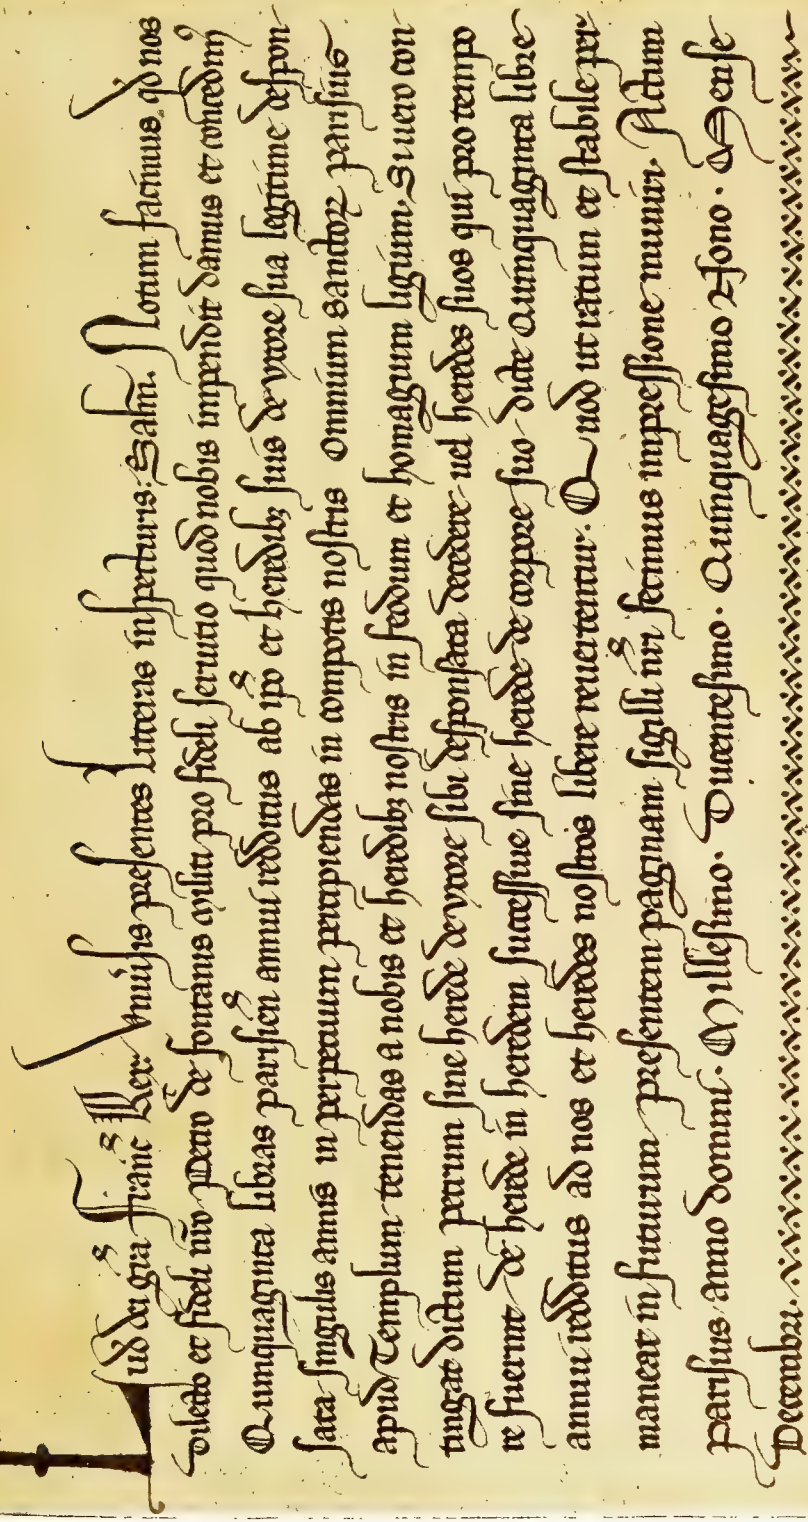 Lud' dei gr̃a Franc̃ Rex. Vniuersis presentes litteras inspecturis: Salt̃m. Notum facimus, qd̃ nos
dilecto et fideli nr̃o Petro de fontanis militi pro fideli seruitio quod nobis impendit damus et concedim⁹
Quinquaginta libras parisien̄ annui redditus ab ip̃o et heredibꝫ suis de vxore sua legitime despon-
sata singulis annis in perpetuum percipiendas in compotis nostris Omnium sanctoꝝ parisius
apud Templum tenendas a nobis et heredibꝫ nostris in feodum et homagium ligium. Si uero con-
tingat dictum petrum sine herede de vxore sibi desponsata decedere uel heredes suos qui pro tempo
re fuerint de herede in heredem successiue sine herede de corpore suo dicte Quinquaginta libre
annui redditus ad nos et heredes nostros libere reuertentur. Quod ut ratum et stabile per-
maneat in futurum presentem paginam sigilli nr̃i fecimus impressione muniri. Actum
parisius anno domini. Millesimo. Ducentesimo. Quinquagesimo Nono. Mense
Decembri.